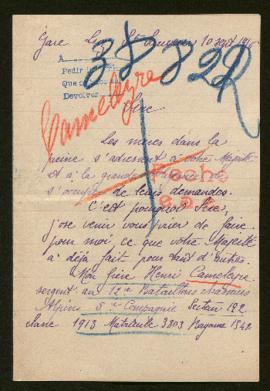 Gare Le 10 août 1916
38822
A
Pedir
Que
Devolver
Sire
Cameleyre
Les mères dans la
peine s'adressent à votre Majesté
et à la grande
s'occupe de leurs demandes.
Roche
C'est pourquoi Sire,
j'ose venir vous prier de faire
pour moi, ce que votre Majesté
a déjà fait pour tant d'autres.
"Mon frère Henri Cameleyre
sergent au 12e Bataillon Chasseurs
Alpins 5e Compagnie Secteur 192
classe 1913 Matricule 3803 Bayonne 1542